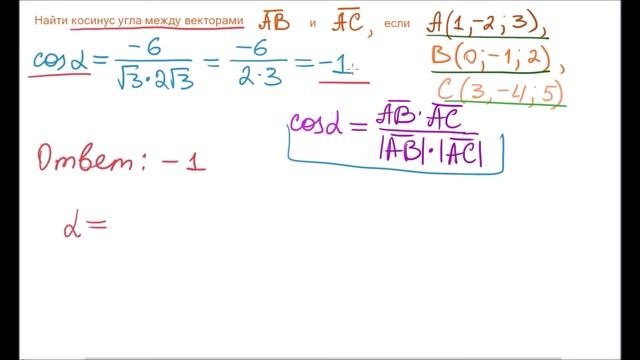 Найти косинус угла между векторами AB и AC, если A(1,-2;3),
B(0;-1;2),
C(3,-4;5)
cosα = -6 / √3·2√3 = -6 / 2·3 = -1
cosα = AB·AC / |AB|·|AC|
Ответ: -1
α =